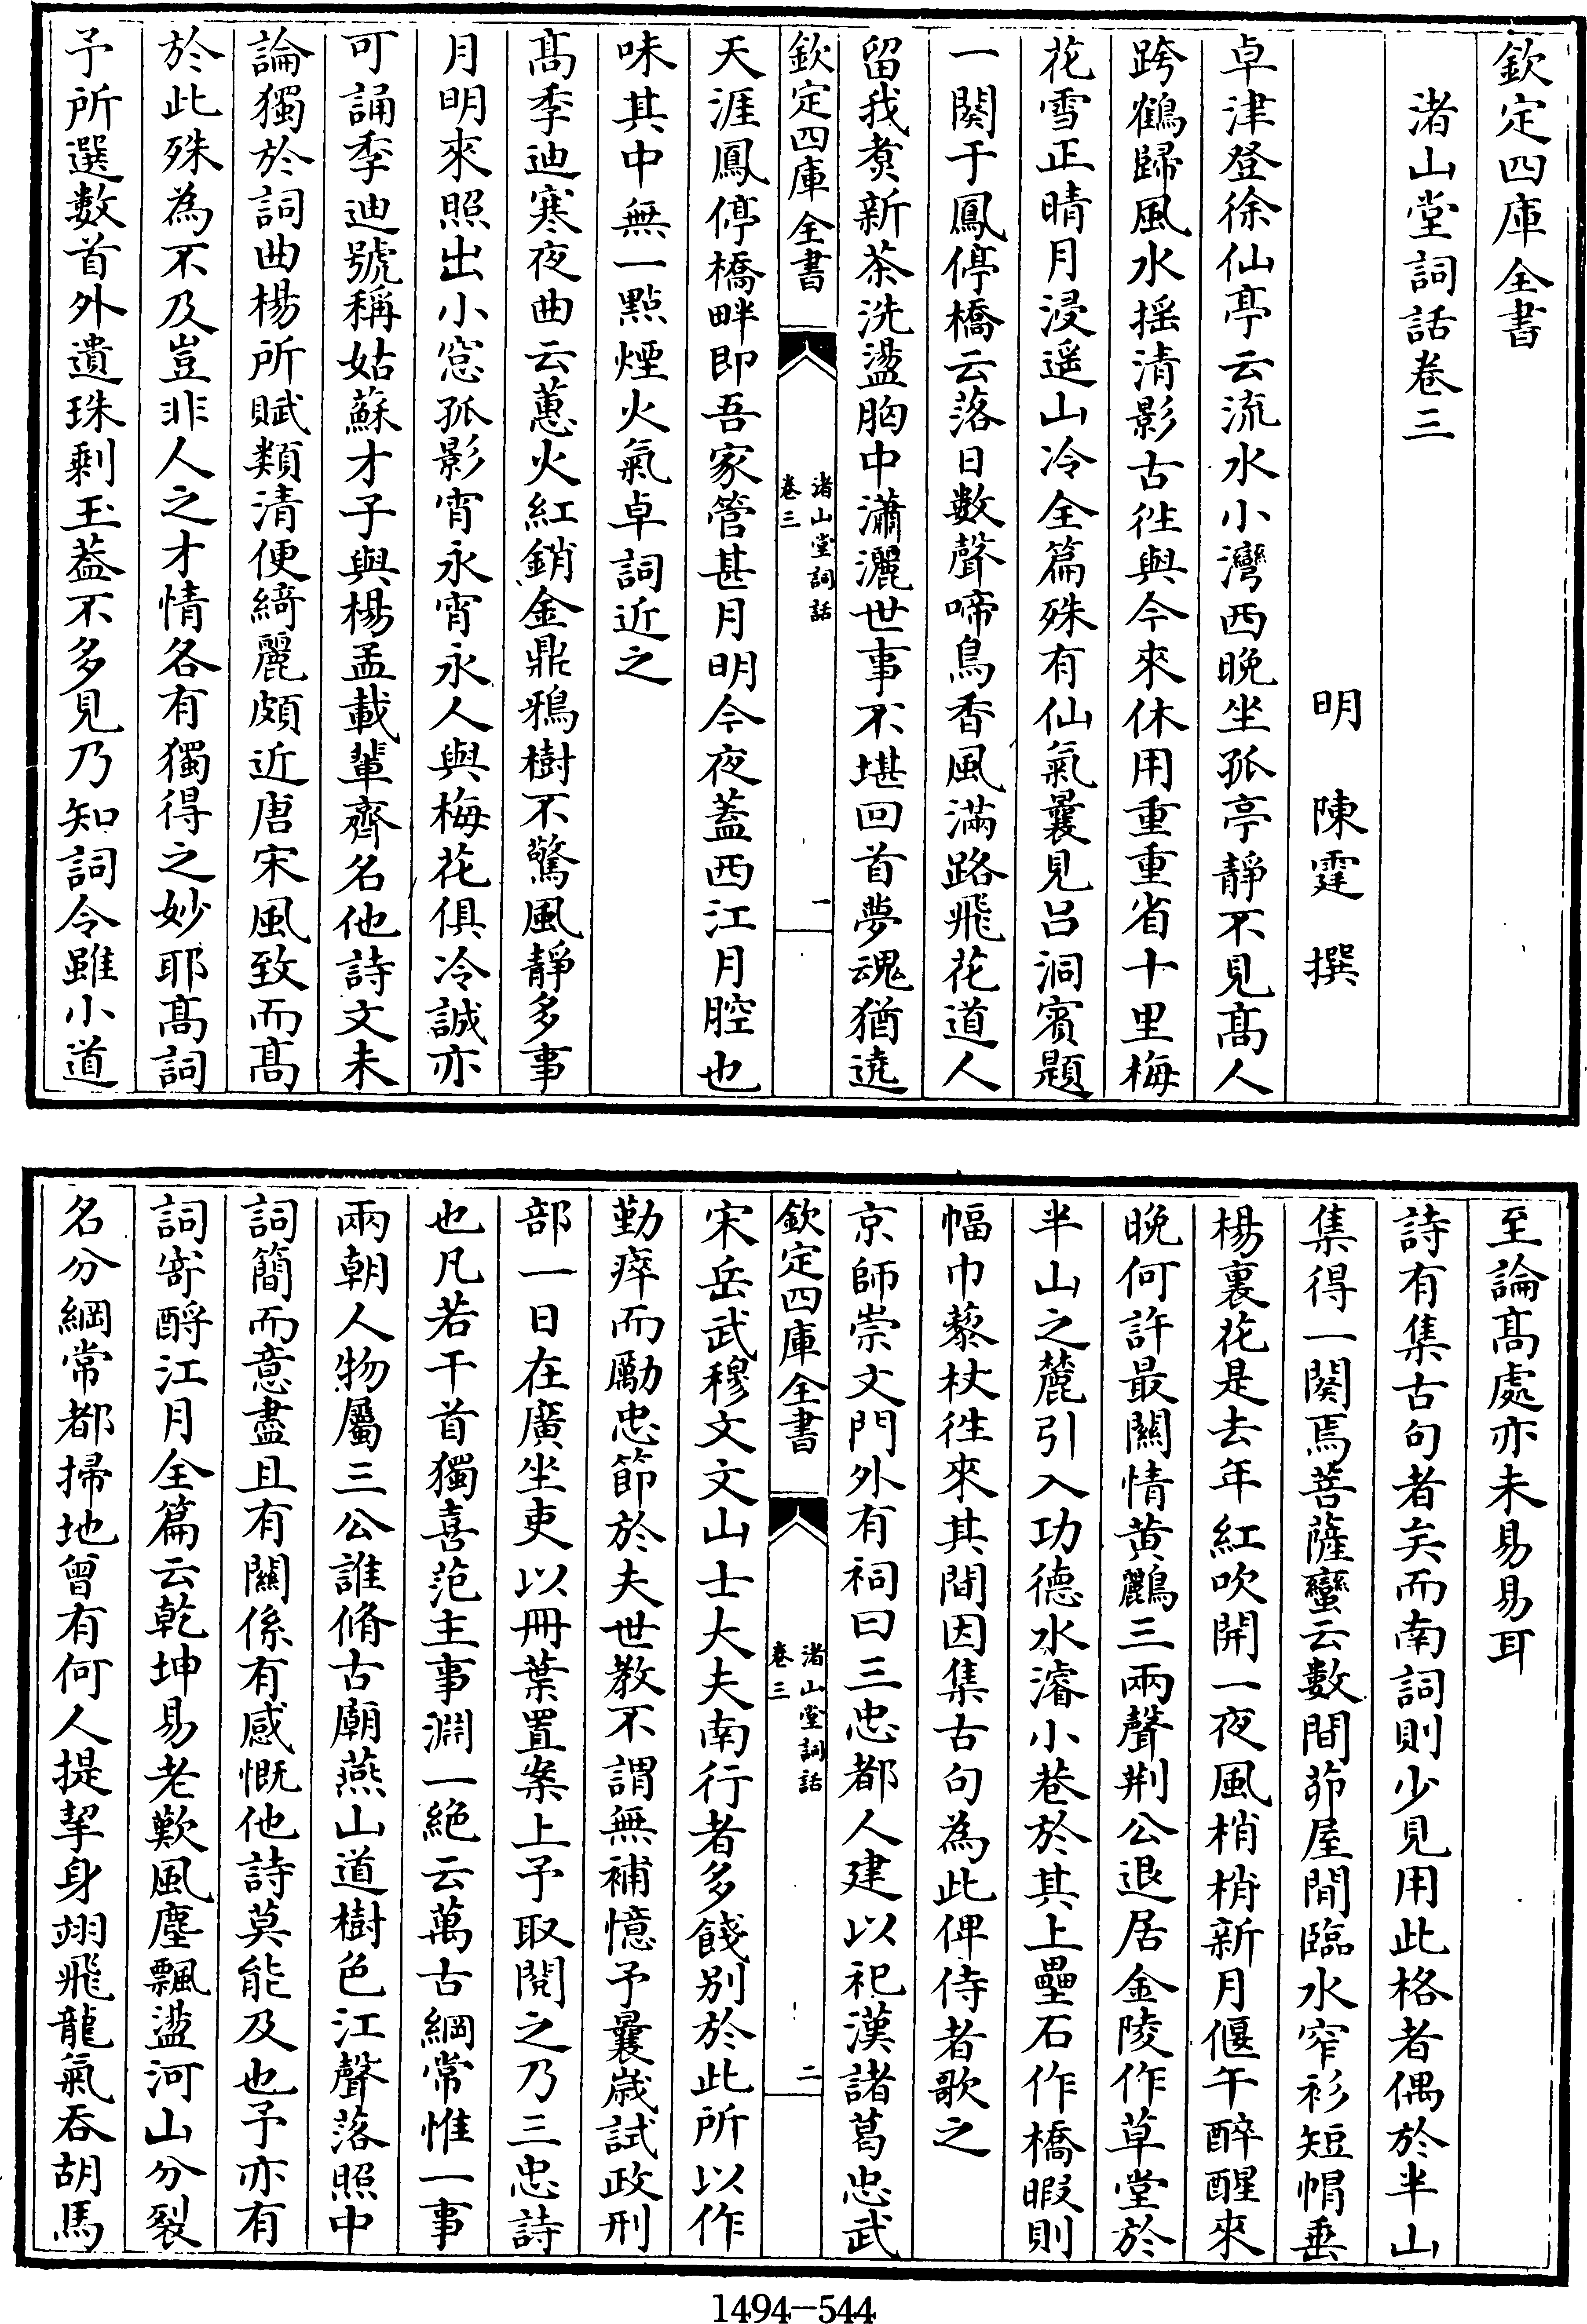 欽定四庫全書
渚山堂詞話卷三
明 陳霆 撰
卓津登徐仙亭云流水小灣西晚坐孤亭靜不見髙人
跨鶴歸風水揺清影古徃與今來休用重重省十里梅
花雪正晴月浸遥山冷全篇殊有仙氣曩見吕洞賓題
一闋于鳳停橋云落日數聲啼鳥香風滿路飛花道人
留我煑新茶洗盪胸中瀟灑世事不堪回首夢魂猶遶
天涯鳳停橋畔即吾家管甚月明今夜蓋西江月腔也
味其中無一點煙火氣卓詞近之
髙季迪寒夜曲云蕙火紅銷金鼎鴉樹不驚風靜多事
月明來照出小窓孤影宵永宵永人與梅花俱冷誠亦
可誦季迪號稱姑蘇才子與楊孟載輩齊名他詩文未
論獨於詞曲楊所賦類清便綺麗頗近唐宋風致而髙
於此殊為不及豈非人之才情各有獨得之妙耶髙詞
予所選數首外遺珠剩玉葢不多見乃知詞令雖小道
欽定四庫全書
渚山堂詞話
卷三
一
至論髙處亦未易易耳
詩有集古句者矣而南詞則少見用此格者偶於半山
集得一闋焉菩薩蠻云數間茆屋閒臨水窄衫短帽垂
楊裏花是去年紅吹開一夜風梢梢新月偃午醉醒來
晚何許最關情黄鸝三兩聲荆公退居金陵作草堂於
半山之麓引入功德水濬小巷於其上壘石作橋暇則
幅巾藜杖徃來其間因集古句為此俾侍者歌之
京師崇文門外有祠曰三忠都人建以祀漢諸葛忠武
宋岳武穆文文山士大夫南行者多餞别於此所以作
勤瘁而勵忠節於夫世教不謂無補憶予曩歲試政刑
部一日在廣坐吏以冊葉置案上予取閱之乃三忠詩
也凡若干首獨喜范主事淵一絶云萬古綱常惟一事
兩朝人物屬三公誰脩古廟燕山道樹色江聲落照中
詞簡而意盡且有關係有感慨他詩莫能及也予亦有
詞寄酹江月全篇云乾坤易老歎風塵飄盪河山分裂
名分綱常都掃地曾有何人提挈身翊飛龍氣吞胡馬
欽定四庫全書
渚山堂詞話
卷三
二
1494-544